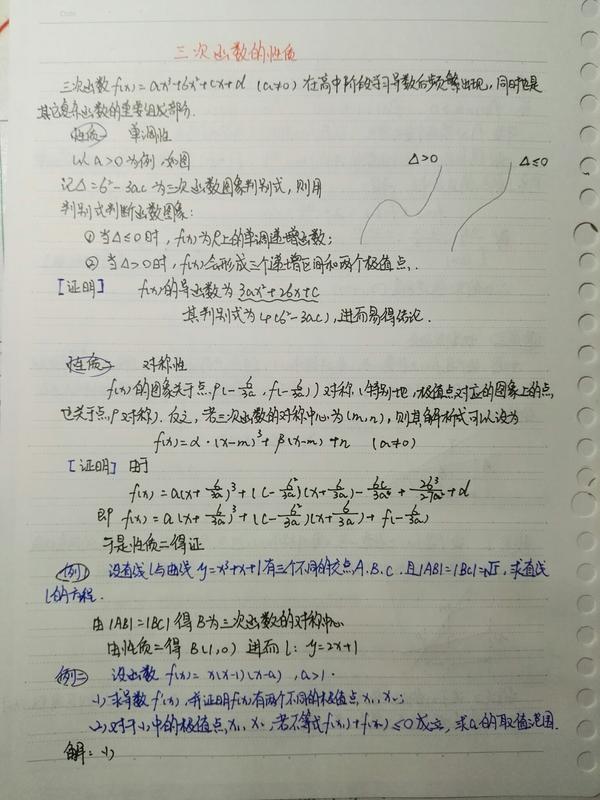 三次函数的性质
三次函数 f(x)=ax³+bx²+cx+d (a≠0) 在高中阶段学习导数后频繁出现，同时也是
其它复杂函数的重要组成部分.
性质一 单调性
以 a>0 为例，如图
Δ>0 Δ≤0
记Δ=b²-3ac 为三次函数图象判别式，则用
判别式判断函数图象：
① 当Δ≤0时，f(x)为R上的单调递增函数；
② 当Δ>0时，f(x)会形成三个递增区间和两个极值点.
[证明] f(x)的导函数为 3ax²+2bx+c
其判别式为 4(b²-3ac)，进而易得结论.
性质二 对称性
f(x)的图象关于点P(-b/3a, f(-b/3a))对称.(特别地,极值点对应的图象上的点,
也关于点P对称). 反之，若三次函数的对称中心为(m,n)，则其解析式可以设为
f(x)=α·(x-m)³+β(x-m)+n (α≠0)
[证明] 由于
f(x)=a(x+b/3a)³+(c-b²/3a)(x+b/3a)-bc/3a+2b³/27a²+d
即 f(x)=a(x+b/3a)³+(c-b²/3a)(x+b/3a)+f(-b/3a)
于是性质二得证
例1 设直线l与曲线 y=x³+x+1 有三个不同的交点A.B.C. 且|AB|=|BC|=√5, 求直线
l的方程.
由|AB|=|BC|得B为三次函数的对称中心
由性质二得 B(1,0) 进而 l: y=2x+1
例二 设函数 f(x)=x(x-1)(x-a)，a>1.
(1)求导数f'(x),并证明f(x)有两个不同的极值点x₁,x₂;
(2)对于(1)中的极值点,x₁,x₂,若不等式f(x₁)+f(x₂)≤0成立，求a的取值范围.
解：(1)